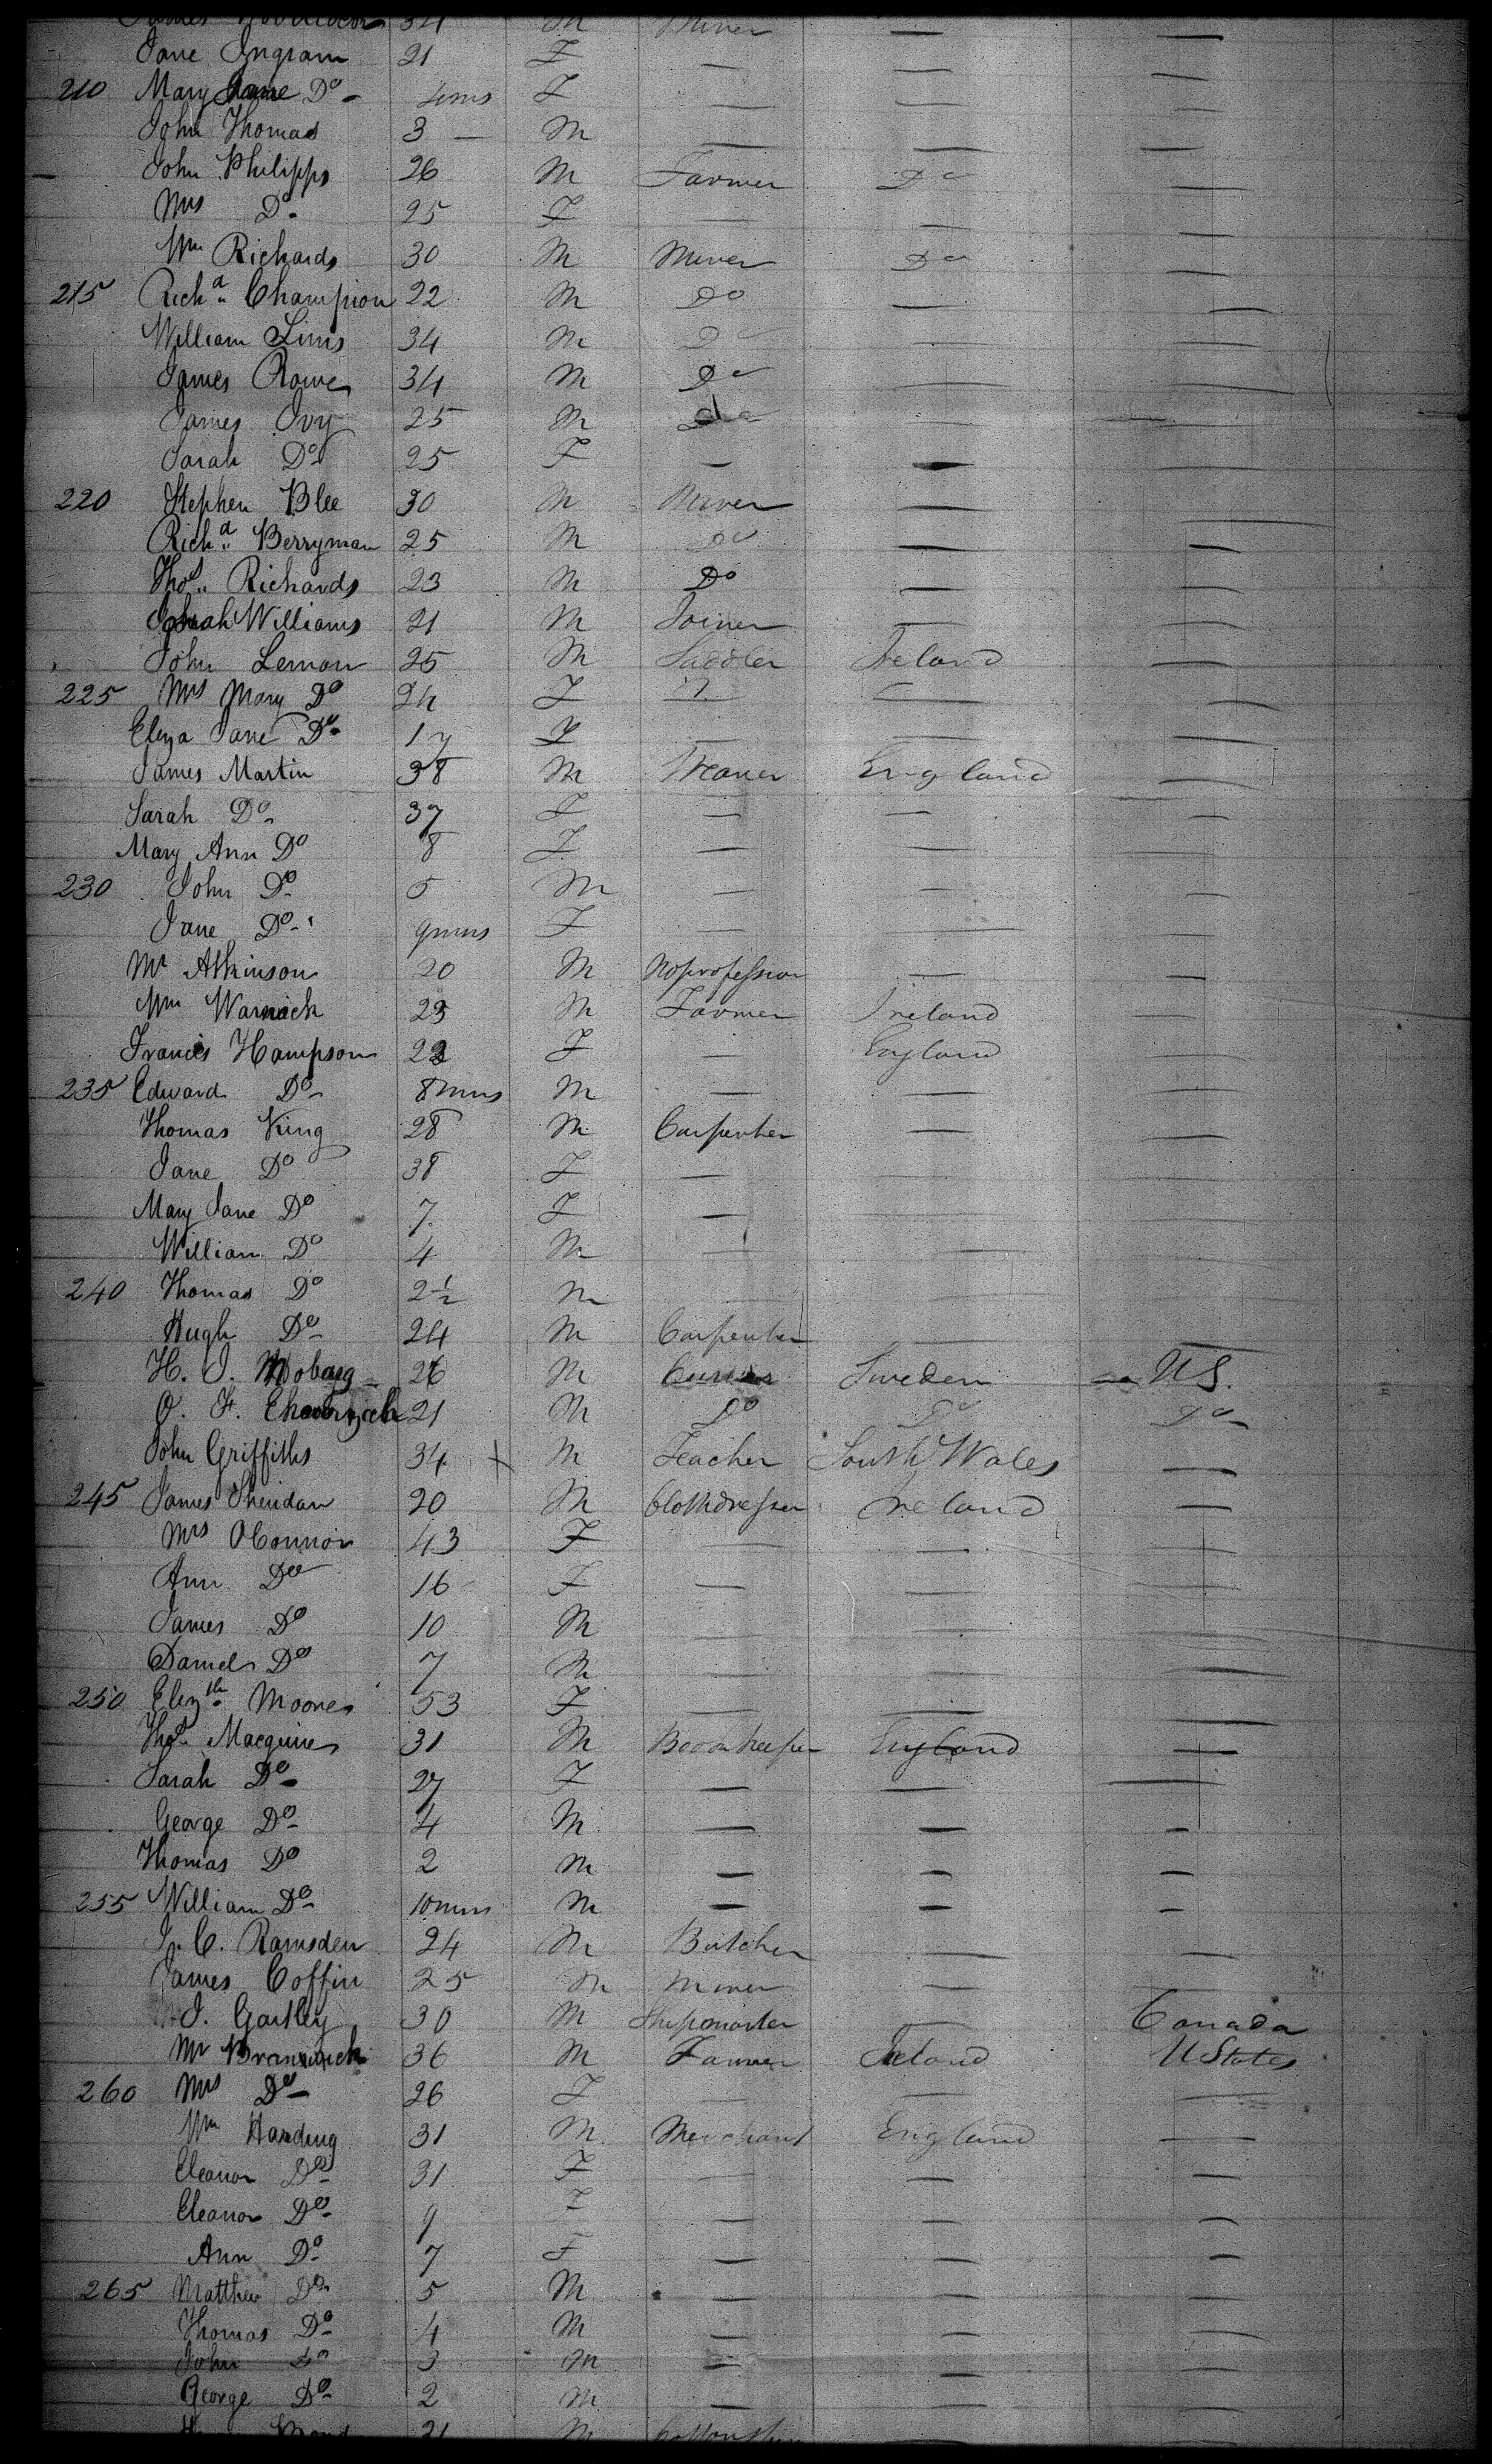 James 34 M Miner — —
Jane Ingram 21 F — —
210 Mary Jane Do - 4 mns F — — —
John Thomas 3 — M — — —
John Philipps 26 M Farmer Do —
Mrs Do 25 F — — —
Wm Richards 30 M Miner Do —
215 Richd Champion 22 M Do — —
William Sims 34 M Do — —
James Rowe 34 M Do — —
James Ivy 25 M Do — —
Sarah Do 25 F — — —
220 Stephen Blee 30 M Miner — —
Richd Berryman 25 M Do — —
Thos Richards 23 M Do — —
Williams 21 M Joiner — —
John Lemon 25 M Saddler Ireland —
225 Mrs Mary Do 24 F — —
Eliza Jane Do 17 F — — —
James Martin 38 M England —
Sarah Do 37 F — — —
Mary Ann Do 8 F — — —
230 John Do 5 M — — —
Jane Do 9 mns F — — —
Mr Atkinson 20 M No profession — —
Wm Warnick 23 M Farmer Ireland —
Frances Hampson 22 F — England
235 Edward Do 8 mns M — — —
Thomas King 28 M Carpenter — —
Jane Do 38 F — — —
Mary Jane Do 7 F — — —
William Do 4 M — — —
240 Thomas Do 2½ M — — —
Hugh Do 24 M Carpenter — —
H. J. 26 M Sweden — U S.
O. F. 21 M Do Do Do
John Griffiths 34 M Teacher South Wales —
245 James Sheridan 20 M Clothdresser Ireland —
Mrs OConnor 43 F — — —
Ann Do 16 F — — —
James Do 10 M — — —
Daniel Do 7 M — — —
250 Elizth Moores 53 F — — —
Thos Macguire 31 M Bookkeeper England —
Sarah Do 27 F — — —
George Do 4 M — — —
Thomas Do 2 M — — —
255 William Do 10 mns M — — —
J. C. Ramsden 24 M Butcher — —
James Coffin 25 M Miner — —
J. Gartley 30 M Shipmaster — Canada
Mr 36 M Farmer Ireland U States
260 Mrs Do 26 F — — —
Wm Harding 31 M Merchant England —
Eleanor Do 31 F — — —
Eleanor Do 9 F — — —
Ann Do 7 F — — —
265 Matthew Do 5 M — — —
Thomas Do 4 M — — —
John Do 3 M — — —
George Do 2 M — — —
21 M